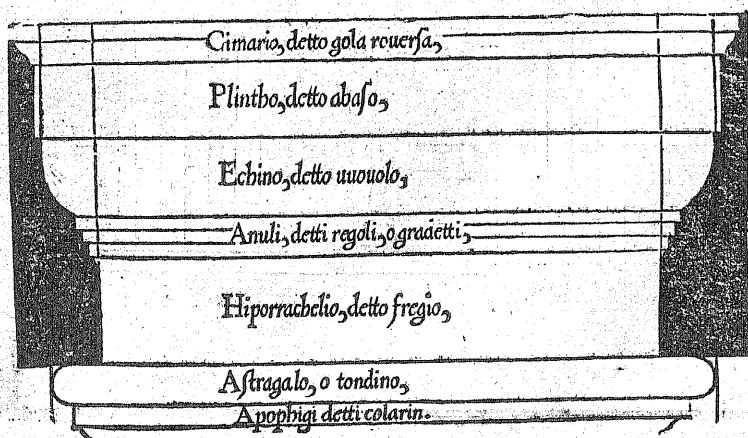 Cimario, detto gola rouerſa,
Plintho, detto abaſo,
Echino, detto uuouolo,
Anuli, detti regoli, o gradetti,
Hiporrachelio, detto fregio,
Aſtragalo, o tondino,
Apophigi detti colarin.